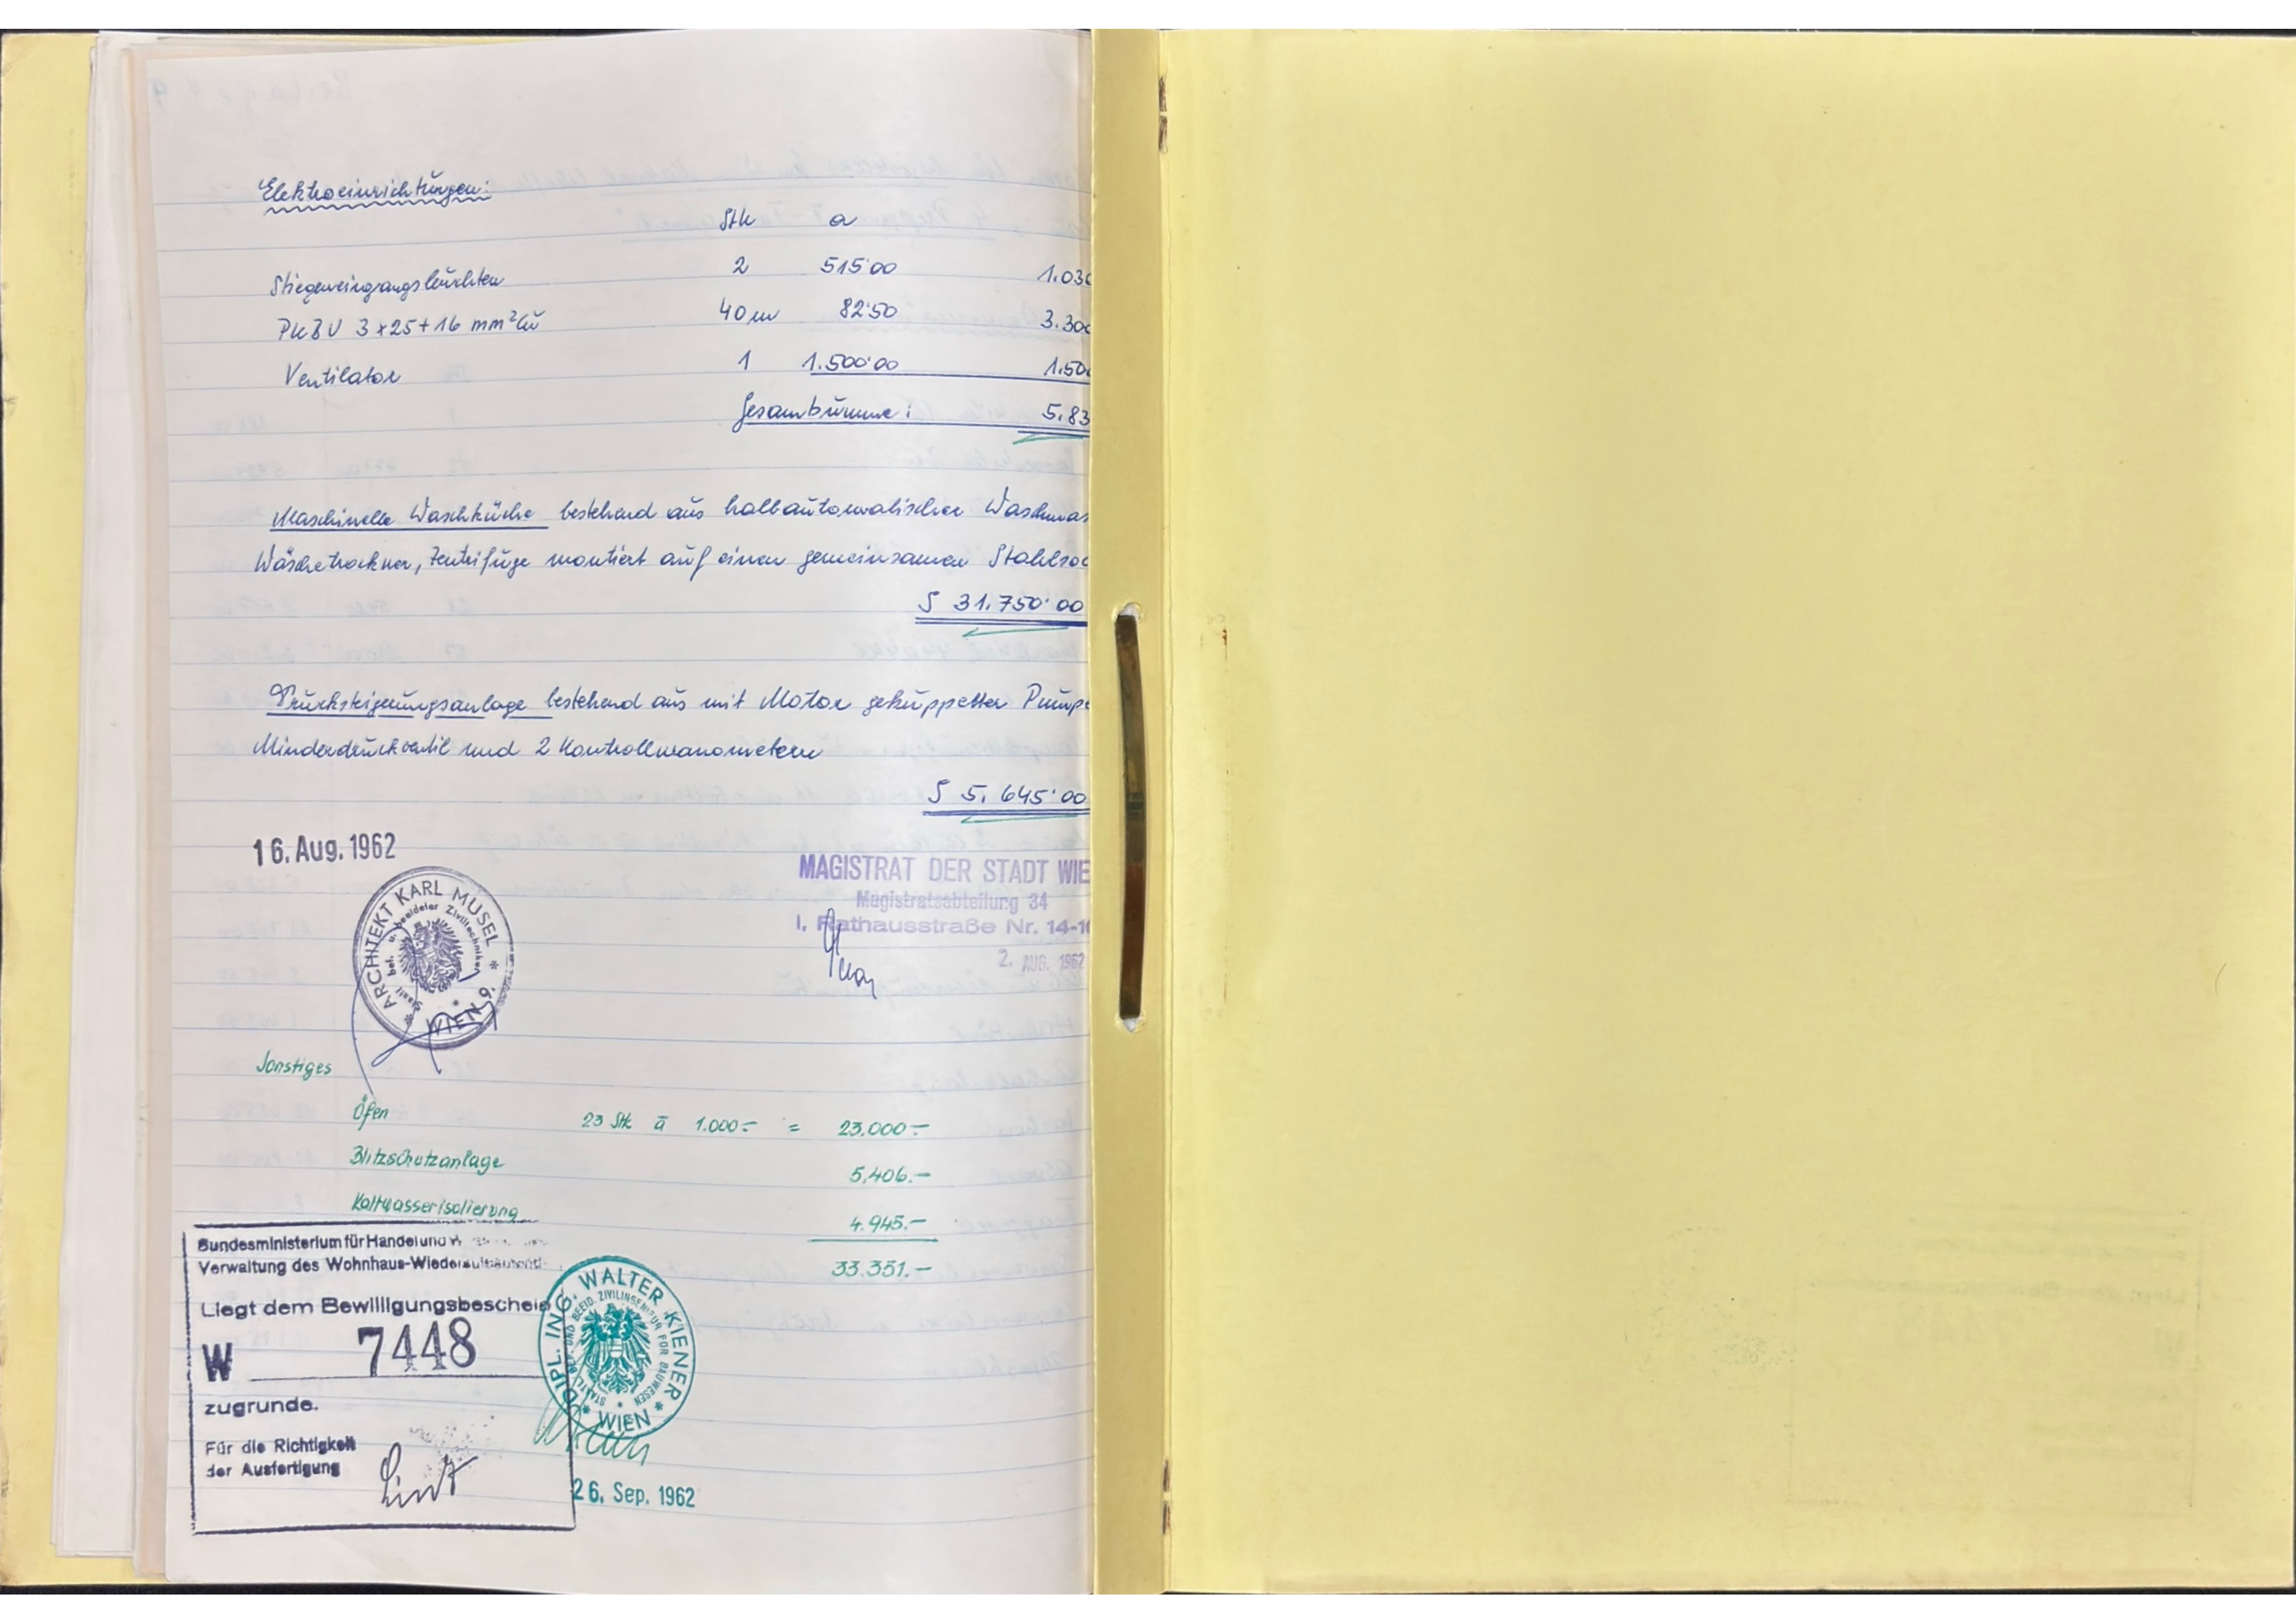 Elektroeinrichtungen:
Stk a
Stiegeneingangsleuchten 2 515'00 1.030
PKBV 3x25+16 mm² Cu 40 m 82'50 3.300
Ventilator 1 1.500'00 1.50
Gesamtsumme: 5.83
Maschinelle Waschküche bestehend aus halbautomatischer Waschmas
Wäschetrockner, Zentrifuge montiert auf einen gemeinsamen Stahlsoc
S 31.750'00
Drucksteigerungsanlage bestehend aus mit Motor gekuppelter Pumpe
Minderdruckventil und 2 Kontrollmanometern
S 5.645'00
16. Aug. 1962
MAGISTRAT DER STADT WIE
Magistratsabteilung 34
I. Rathausstraße Nr. 14-1
2. AUG. 1962
ARCHITEKT KARL MUSEL
Staatl. bef. u. beeideter Ziviltechniker
WIEN
Sonstiges
Öfen 23 Stk à 1.000.- = 23.000.-
Blitzschutzanlage 5.406.-
Kaltwasserisolierung 4.945.-
33.351.-
Bundesministerium für Handel und W
Verwaltung des Wohnhaus-Wiederaufbaufond
Liegt dem Bewilligungsbescheid
W 7448
zugrunde.
Für die Richtigkeit
der Ausfertigung
DIPL. ING. WALTER KIENER
STAATL. BEF. UND BEEID. ZIVILINGENIEUR FÜR BAUWESEN
WIEN
26. Sep. 1962